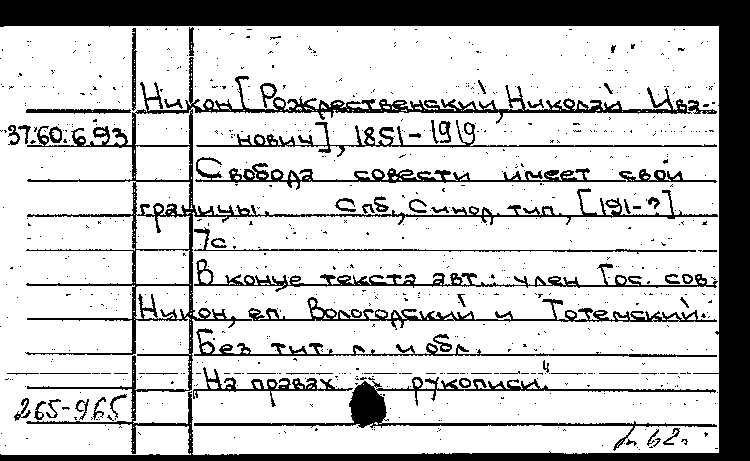 Никон [Рождественский, Николай Ива-
37.60.6.93 нович], 1851-1919
Свобода совести имеет свои
границы. Спб., Синод. тип., [191-?].
7с.
В конце текста авт.: член Гос. сов.
Никон, еп. Вологодский и Тотемский.
Без тит. л. и обл.
"На правах рукописи."
265-965
62